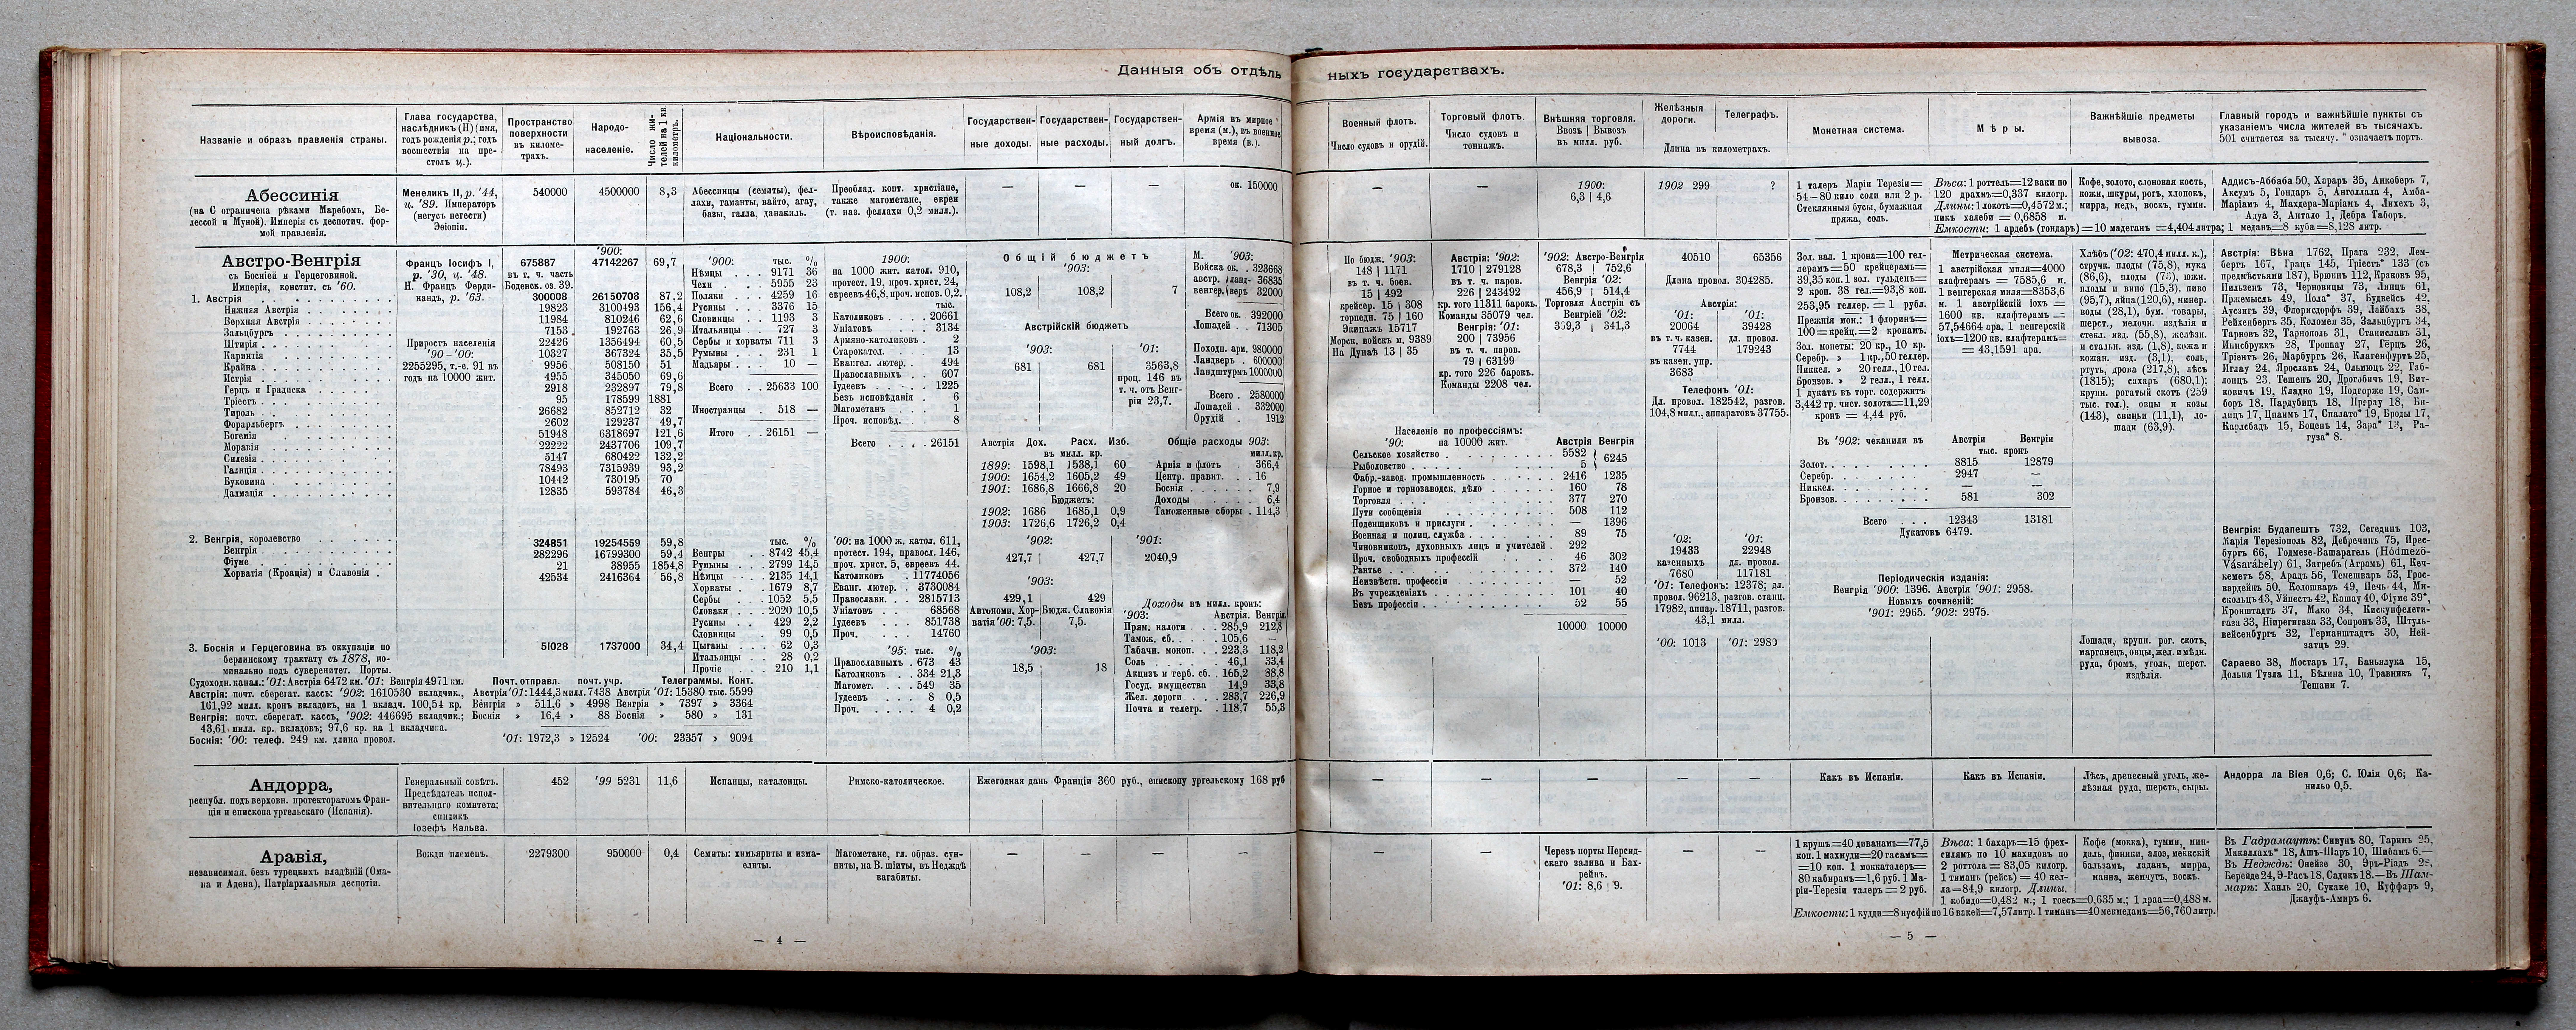 Данныя объ отдѣль
ныхъ государствахъ.
Названіе и образъ правленія страны.
Глава государства,
наслѣдник (Н) (имя,
годъ рожденія р.; годъ
восшествія на пре-
столъ ц.).
Пространство
поверхности
въ киломе-
трахъ.
Народо-
населеніе.
Число жи-
телей на 1 кв.
километръ.
Національности.
Вѣроисповѣданія.
Государствен-
ные доходы.
Государствен-
ные расходы.
Государствен-
ный долгъ.
Армія въ мирное
время (м.), въ военное
время (в.).
Абессинія
(на С ограничена рѣками Маребомъ, Бе-
лессой и Муной). Имперія съ деспотич. фор-
мой правленія.
Менеликъ II, р. '44,
ц. '89. Императоръ
(негусъ негести)
Эѳіопіи.
540000
4500000
8,3
Абессинцы (семиты), фел-
лахи, гаманты, вайто, агау,
бавы, галла, данакиль.
Преоблад. копт. христіане,
также магометане, евреи
(т. наз. феллахи 0,2 милл.).
—
—
—
ок. 150000
Австро-Венгрія
съ Босніей и Герцеговиной.
Имперія, констит. съ '60.
Францъ Іосифъ I,
р. '30, ц. '48.
Н. Францъ Ферди-
нандъ, р. '63.
Приростъ населенія
'90–'00:
2255295, т.-е. 91 въ
годъ на 10000 жит.
'900:
675887 47142267 69,7
въ т. ч. часть
Боденск. оз. 39.
1. Австрія 300008 26150708 87,2
Нижняя Австрія 19823 3100493 156,4
Верхняя Австрія 11984 810246 62,6
Зальцбургъ 7153 192763 26,9
Штирія 22426 1356494 60,5
Каринтія 10327 367324 35,5
Крайна 9956 508150 51
Истрія 4955 345050 69,6
Герцъ и Градиска 2918 232897 79,8
Тріестъ 95 178599 1881
Тироль 26682 852712 32
Форарльбергъ 2602 129237 49,7
Богемія 51948 6318697 121,6
Моравія 22222 2437706 109,7
Силезія 5147 680422 132,2
Галиція 78493 7315939 93,2
Буковина 10442 730195 70
Далмація 12835 593784 46,3
2. Венгрія, королевство 324851 19254559 59,8
Венгрія 282296 16799300 59,4
Фіуме 21 38955 1854,8
Хорватія (Кроація) и Славонія 42534 2416364 56,8
3. Боснія и Герцеговина въ оккупаціи по 51028 1737000 34,4
берлинскому трактату съ 1878, но-
минально подъ суверенитет. Порты.
'900: тыс. %
Нѣмцы 9171 36
Чехи 5955 23
Поляки 4259 16
Русины 3376 13
Словинцы 1193 3
Итальянцы 727 3
Сербы и хорваты 711 3
Румыны 231 1
Мадьяры 10 —
Всего 25633 100
Иностранцы 518 —
Итого 26151 —
тыс. %
Венгры 8742 45,4
Румыны 2799 14,5
Нѣмцы 2135 14,1
Хорваты 1679 8,7
Сербы 1052 5,5
Словаки 2020 10,5
Русины 429 2,2
Словинцы 99 0,5
Цыганы 62 0,3
Итальянцы 28 0,2
Прочіе 210 1,1
1900:
на 1000 жит. катол. 910,
протест. 19, проч. христ. 24,
евреевъ 46,8, проч. испов. 0,2.
тыс.
Католиковъ 20661
Уніатовъ 3134
Армяно-католиковъ 2
Старокатол. 13
Евангел. лютер. 494
Православныхъ 607
Іудеевъ 1225
Безъ исповѣданія 6
Магометанъ 1
Проч. исповѣд. 8
Всего 26151
'00: на 1000 ж. катол. 611,
протест. 194, правосл. 146,
проч. христ. 5, евреевъ 44.
Католиковъ 11774056
Еванг. лютер. 3730084
Православн. 2815713
Уніатовъ 68568
Іудеевъ 851738
Проч. 14760
'95: тыс. %
Православныхъ 673 43
Католиковъ 334 21,3
Магомет. 549 35
Іудеевъ 8 0,5
Проч. 4 0,2
Общій бюджетъ
'903:
108,2 108,2 7
Австрійскій бюджетъ
'903: '01:
681 681 3563,8
проц. 146 въ
т. ч. отъ Венг-
ріи 23,7.
М. '903:
Войска ок. 323668
австр. ланд- 36835
венгер. веръ 32000
Всего ок. 392000
Лошадей 71305
Походн. арм. 980000
Ландверъ 600000
Ландштурмъ 1000000
Всего 2580000
Лошадей 332000
Орудій 1912
Австрія Дох. Расх. Изб.
въ милл. кр.
1899: 1598,1 1538,1 60
1900: 1654,2 1605,2 49
1901: 1686,8 1666,8 20
Бюджетъ:
1902: 1686 1685,1 0,9
1903: 1726,6 1726,2 0,4
Общіе расходы 903:
милл. кр.
Армія и флотъ 366,4
Центр. правит. 16
Боснія 7,9
Доходы 6,4
Таможенные сборы 114,3
'902: '901:
427,7 427,7 2040,9
'903:
429,1 429
Автономн. Хор- Бюдж. Славонія
ватія '00: 7,5. 7,5.
'903:
18,5 18
Доходы въ милл. кронъ:
'903: Австрія. Венгрія
Прям. налоги 285,9 212,8
Тамож. сб. 105,6 —
Табачн. моноп. 223,3 118,2
Соль 46,1 33,4
Акцизъ и герб. сб. 165,2 88,8
Госуд. имущества 14,9 33,8
Жел. дороги 283,7 226,9
Почта и телегр. 118,7 55,3
Судоходн. канал.: '01: Австрія 6472 км. '01: Венгрія 4971 км.
Австрія: почт. сберегат. кассъ: '902: 1610530 вкладчик.,
161,92 милл. кронъ вкладовъ, на 1 вкладч. 100,54 кр.
Венгрія: почт. сберегат. кассъ, '902: 446695 вкладчик.;
43,61 милл. кр. вкладовъ; 97,6 кр. на 1 вкладчика.
Боснія: '00: телеф. 249 км. длина провол.
Почт. отправл. почт. учр. Телеграммы. Конт.
Австрія '01: 1444,3 милл. 7438 Австрія '01: 15380 тыс. 5599
Венгрія » 511,6 » 4998 Венгрія » 7397 » 3364
Боснія » 16,4 » 88 Боснія » 580 » 131
'01: 1972,3 » 12524 '00: 23357 » 9094
Андорра,
республ. подъ верховн. протекторатомъ Фран-
ціи и епископа ургельскаго (Испанія).
Генеральный совѣтъ.
Предсѣдатель испол-
нительнаго комитета:
синдикъ
Іозефъ Кальва.
452
'99 5231
11,6
Испанцы, каталонцы.
Римско-католическое.
Ежегодная дань Франціи 360 руб., епископу ургельскому 168 руб
Аравія,
независимая, безъ турецкихъ владѣній (Ома-
на и Адена), Патріархальныя деспотіи.
Вожди племенъ.
2279300
950000
0,4
Семиты: химьяриты и изма-
елиты.
Магометане, гл. образ. сун-
ниты, на В. шіиты, въ Неджѣ
вагабиты.
—
—
—
—
— 4 —
Военный флотъ.
Число судовъ и орудій.
Торговый флотъ.
Число судовъ и
тоннажъ.
Внѣшняя торговля.
Ввозъ | Вывозъ
въ милл. руб.
Желѣзныя
дороги.
Телеграфъ.
Длина въ километрахъ.
Монетная система.
Мѣры.
Важнѣйшіе предметы
вывоза.
Главный городъ и важнѣйшіе пункты съ
указаніемъ числа жителей въ тысячахъ.
501 считается за тысячу. * означаетъ портъ.
—
—
1900:
6,3 | 4,6
1902 299
?
1 талеръ Маріи Терезіи=
54—80 кило соли или 2 р.
Стеклянныя бусы, бумажная
пряжа, соль.
Вѣса: 1 роттель=12 ваки по
120 драхмъ=0,337 килогр.
Длины: 1 локоть=0,4572 м.;
пикъ халеби = 0,6858 м.
Емкости: 1 ардебъ (гондаръ)=10 мадеганъ =4,404 литра; 1 меданъ=8 куба=8,128 литр.
Кофе, золото, слоновая кость,
кожи, шкуры, рогъ, хлопокъ,
мирра, медь, воскъ, гумми.
Аддисъ-Аббаба 50, Хараръ 35, Анкоберъ 7,
Аксумъ 5, Гондаръ 5, Анголлала 4, Амба-
Маріамъ 4, Махдера-Маріамъ 4, Лихехъ 3,
Адуа 3, Антало 1, Дебра Габоръ.
По бюдж. '903:
148 | 1171
въ т. ч. боев.
15 | 492
крейсер. 15 | 308
торпедн. 75 | 160
Экипажъ 15717
Морск. войскъ м. 9389
На Дунаѣ 13 | 35
Австрія: '902:
1710 | 279128
въ т. ч. паров.
226 | 243492
кр. того 11311 барокъ.
Команды 35079 чел.
Венгрія: '01:
200 | 73956
въ т. ч. паров.
79 | 63199
кр. того 226 барокъ.
Команды 2208 чел.
'902: Австро-Венгрія
678,3 | 752,6
Венгрія '02:
456,9 | 514,4
Торговля Австріи съ
Венгріей '02:
359,3 | 341,3
40510 65356
Длина провол. 304285.
Австрія:
'01: '01:
20064 39428
въ т. ч. казен. дл. провол.
7744 179243
въ казен. упр.
3683
Телефонъ '01:
Дл. провол. 182542, разгов.
104,8 милл., аппаратовъ 37755.
Населеніе по профессіямъ:
'90: на 10000 жит. Австрія Венгрія
Сельское хозяйство 5582
Рыболовство 5 6245
Фабр.-завод. промышленность 2416 1235
Горное и горнозаводск. дѣло 160 78
Торговля 377 270
Пути сообщенія 508 112
Поденщиковъ и прислуги — 1396
Военная и полиц. служба 89 75
Чиновниковъ, духовныхъ лицъ и учителей 292
Проч. свободныхъ профессій 46 302
Рантье 372 140
Неизвѣстн. профессіи — 52
Въ учрежденіяхъ 101 40
Безъ профессіи 52 55
10000 10000
'02: '01:
19433 22948
казенныхъ дл. провол.
7680 117181
'01: Телефонъ: 12378; дл.
провол. 96213, разгов. станц.
17982, аппар. 18711, разгов.
43,1 милл.
'00: 1013 '01: 2980
Зол. вал. 1 крона=100 гел-
лерамъ=50 крейцерамъ=
39,35 коп. 1 зол. гульденъ=
2 крон. 38 гел.=93,8 коп.
253,95 геллер. = 1 рубл.
Прежнія мон.: 1 флоринъ=
100 крейц.=2 кронамъ.
Зол. монеты: 20 кр., 10 кр.
Серебр. » 1 кр., 50 геллер.
Никкел. » 20 гелл., 10 гел.
Бронзов. » 2 гелл., 1 гелл.
1 дукатъ въ торг. содержитъ
3,442 гр. чист. золота=11,29
кронъ = 4,44 руб.
Метрическая система.
1 австрійская миля=4000
клафтерамъ = 7585,6 м.
1 венгерская миля=8353,6
м. 1 австрійскій іохъ =
1600 кв. клафтерамъ =
57,54664 ара. 1 венгерскій
іохъ=1200 кв. клафтерамъ=
= 43,1591 ара.
Въ '902: чеканили въ Австріи Венгріи
тыс. кронъ
Золот. 8815 12879
Серебр. 2947 —
Никкел. — —
Бронзов. 581 302
Всего 12343 13181
Дукатовъ 6479.
Періодическія изданія:
Венгрія '900: 1396. Австрія '901: 2958.
Новыхъ сочиненій:
'901: 2965. '902: 2975.
Хлѣбъ ('02: 470,4 милл. к.),
стручк. плоды (75,8), мука
(86,6), плоды (75), южн.
плоды и вино (15,3), пиво
(95,7), яйца (120,6), минер.
воды (28,1), бум. товары,
шерст., мелочн. издѣлія и
стекл. изд. (55,8), желѣзн.
и стальн. изд. (1,8), кожа и
кожан. изд. (3,1), соль,
ртуть, дрова (217,8), лѣсъ
(1815); сахаръ (680,1);
крупн. рогатый скотъ (259
тыс. гол.), овцы и козы
(143), свиньи (11,1), ло-
шади (63,9).
Лошади, крупн. рог. скотъ,
марганецъ, овцы, жел. и мѣдн.
руда, бромъ, уголь, шерст.
издѣлія.
Австрія: Вѣна 1762, Прага 232, Лем-
бергъ 167, Грацъ 145, Тріестъ* 133 (съ
предмѣстьями 187), Брюннъ 112, Краковъ 95,
Пильзенъ 73, Черновицы 73, Линцъ 61,
Пржемыслъ 49, Пола* 37, Будвейсъ 42,
Аусзигъ 39, Флорисдорфъ 39, Лайбахъ 38,
Рейхенбергъ 35, Коломея 35, Зальцбургъ 34,
Тарновъ 32, Тарнополь 31, Станиславъ 31,
Инисбруккъ 28, Троппау 27, Гёрцъ 26,
Тріентъ 26, Марбургъ 26, Клагенфуртъ 25,
Иглау 24, Ярославъ 24, Ольмюцъ 22, Габ-
лонцъ 23, Тешенъ 20, Дрогобичъ 19, Вит-
ковичъ 19, Кладно 19, Подгорже 19, Сам-
боръ 18, Пардубицъ 18, Прерау 18, Би-
лицъ 17, Цнаимъ 17, Спалато* 19, Броды 17,
Карлсбадъ 15, Боценъ 14, Зара* 13, Ра-
гуза* 8.
Венгрія: Будапештъ 732, Сегединъ 103,
Марія Терезіополь 82, Дебречинъ 75, Прес-
бургъ 66, Годмезе-Вашарагель (Hódmezö-
Vásárhely) 61, Загребъ (Аграмъ) 61, Кеч-
кеметъ 58, Арадъ 56, Темешваръ 53, Грос-
вардейнъ 50, Колошваръ 49, Печъ 44, Ми-
скольцъ 43, Уйпестъ 42, Кашау 40, Фіуме 39*,
Кронштадтъ 37, Мако 34, Кискунфелеги-
газа 33, Нірегигаза 33, Сопронъ 33, Штуль-
вейсенбургъ 32, Германштадтъ 30, Ней-
затцъ 29.
Сараево 38, Мостаръ 17, Баньялука 15,
Дольня Тузла 11, Бѣлина 10, Травникъ 7,
Тешани 7.
—
—
—
—
—
Какъ въ Испаніи.
Какъ въ Испаніи.
Лѣсъ, древесный уголь, же-
лѣзная руда, шерсть, сыры.
Андорра ла Віея 0,6; С. Юлія 0,6; Ка-
нильо 0,5.
—
—
Черезъ порты Персид-
скаго залива и Бах-
рейнъ.
'01: 8,6 | 9.
—
—
1 крушъ=40 диванамъ=77,5
коп. 1 махмуди=20 гасамъ=
=10 коп. 1 моккаталеръ=
80 кабирамъ=1,6 руб. 1 Ма-
ріи-Терезіи талеръ = 2 руб.
Вѣса: 1 бахаръ=15 фрех-
силямъ по 10 махидовъ по
2 роттола = 83,05 килогр.
1 тиманъ (рейсъ) = 40 кел-
ла=84,9 килогр. Длины.
1 кобидо=0,482 м.; 1 гоесъ=0,635 м.; 1 драа=0,488 м.
Емкости: 1 кудди=8 нусфій по 16 вакей=7,57 литр. 1 тиманъ=40 мекмедамъ=56,760 литр.
Кофе (мокка), гумми, мин-
даль, финики, алоэ, меккскій
бальзамъ, ладанъ, мирра,
манна, жемчугъ, воскъ.
Въ Гадрамаутъ: Сивунъ 80, Таримъ 25,
Макаллахъ* 18, Ашъ-Шаръ 10, Шибамъ 6.—
Въ Недждъ: Онейзе 30, Эръ-Ріадъ 28,
Берейде 24, Э-Расъ 18, Садикъ 18.—Въ Шам-
маръ: Хаиль 20, Сукаке 10, Куффаръ 9,
Джауфъ-Амиръ 6.
— 5 —